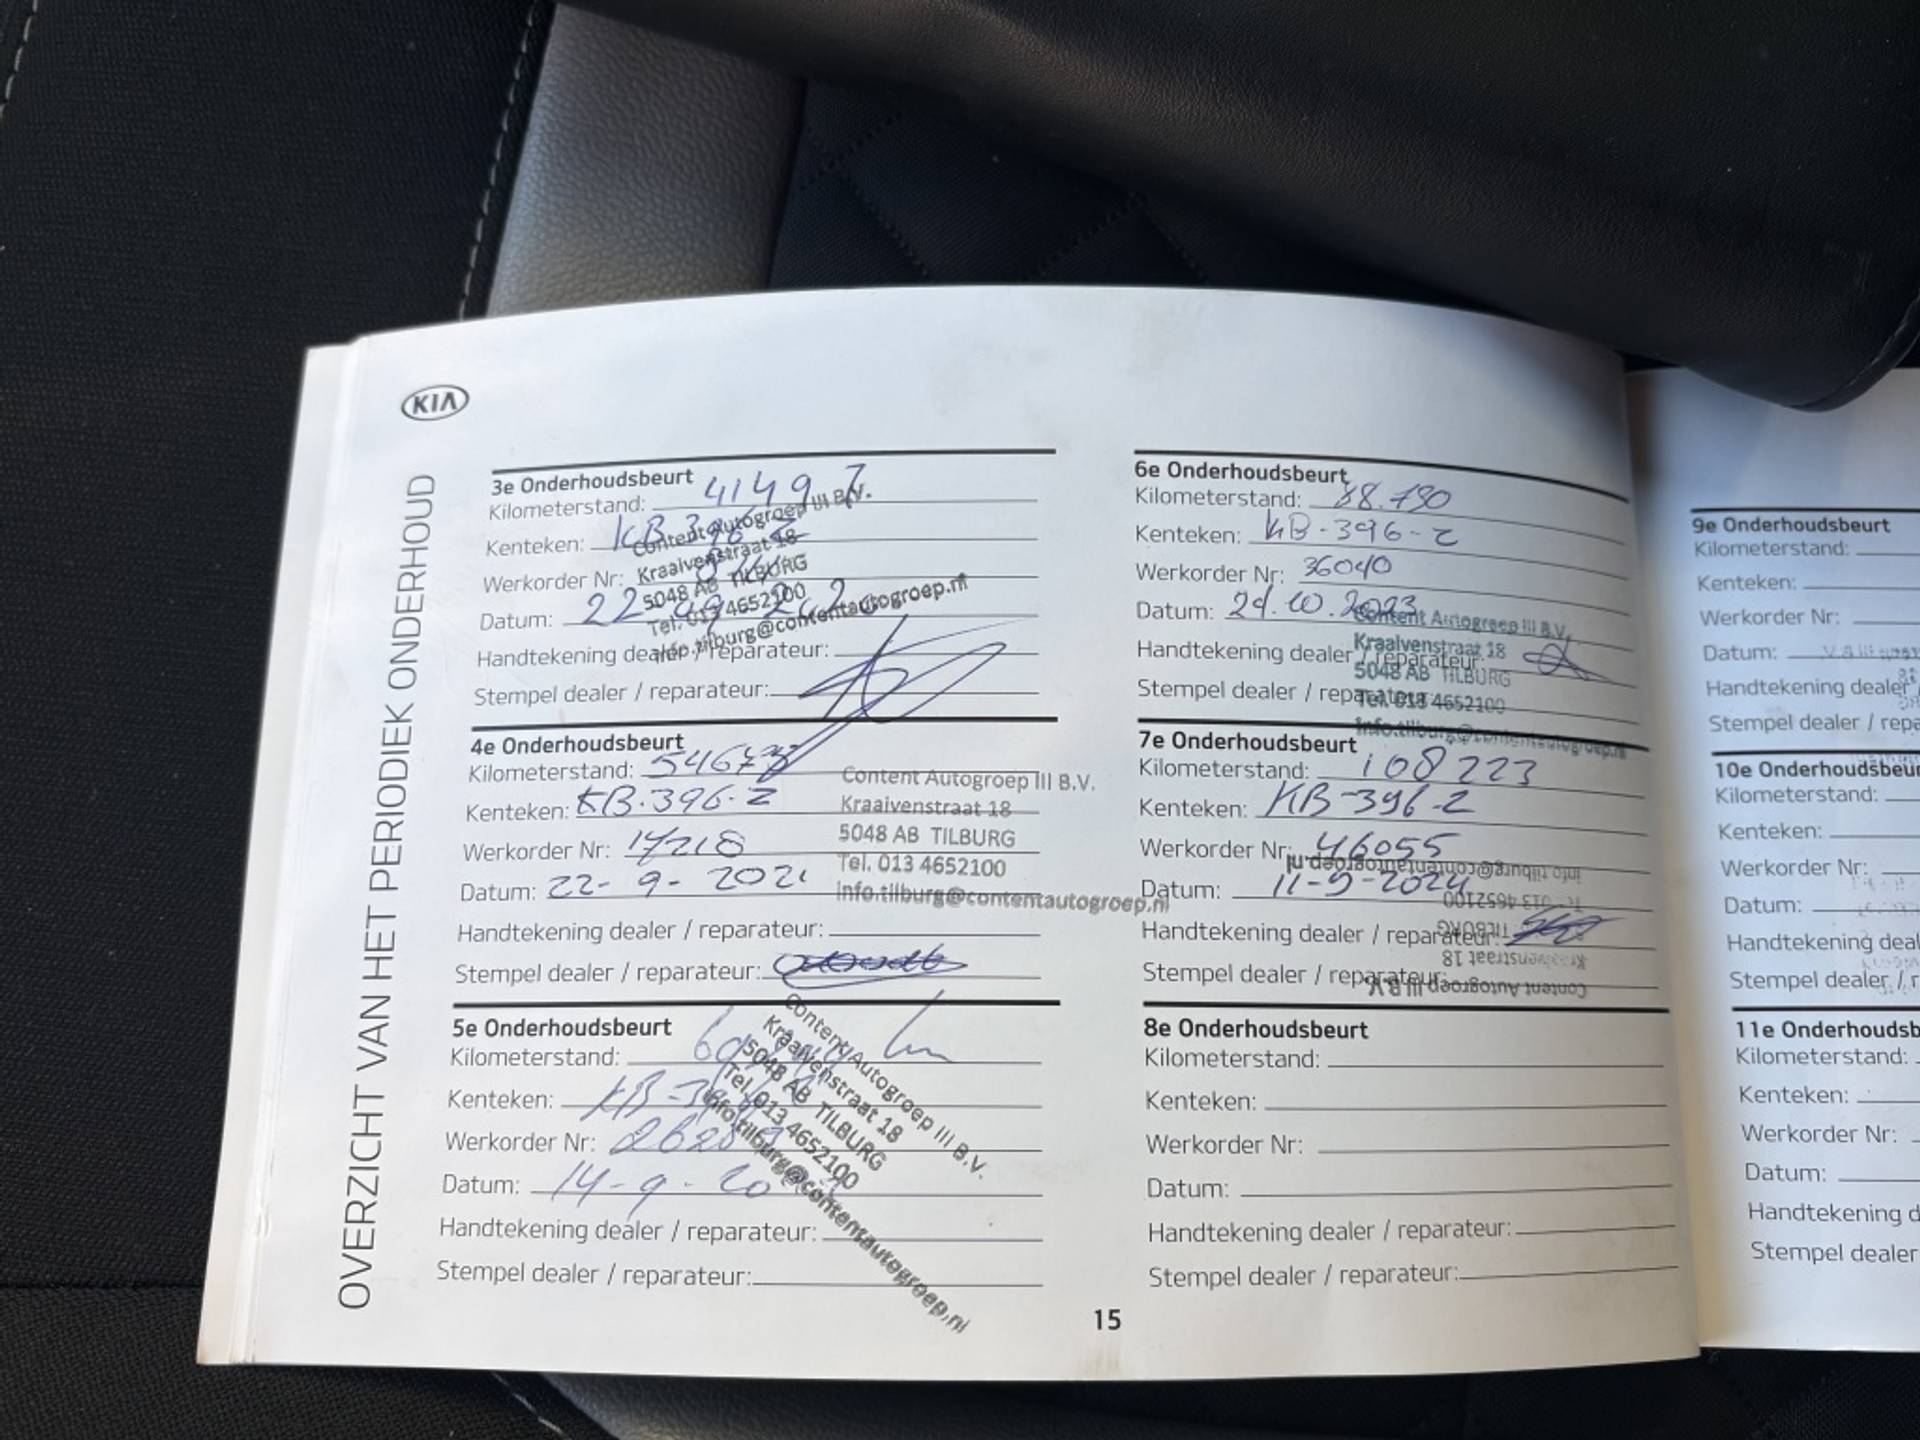 KIA
OVERZICHT VAN HET PERIODIEK ONDERHOUD
3e Onderhoudsbeurt
Kilometerstand: 41497
Kenteken: KB 396 Z
Werkorder Nr:
Datum: 22
Handtekening dealer / reparateur:
Stempel dealer / reparateur:
Content Autogroep III B.V.
Kraaivenstraat 18
5048 AB TILBURG
Tel. 013 4652100
info.tilburg@contentautogroep.nl
4e Onderhoudsbeurt
Kilometerstand:
Kenteken: KB-396-Z
Werkorder Nr: 17218
Datum: 22-9-2021
Handtekening dealer / reparateur:
Stempel dealer / reparateur:
Content Autogroep III B.V.
Kraaivenstraat 18
5048 AB TILBURG
Tel. 013 4652100
info.tilburg@contentautogroep.nl
5e Onderhoudsbeurt
Kilometerstand:
Kenteken: KB-
Werkorder Nr:
Datum: 14-9-20
Handtekening dealer / reparateur:
Stempel dealer / reparateur:
Content Autogroep III B.V.
Kraaivenstraat 18
5048 AB TILBURG
Tel. 013 4652100
info.tilburg@contentautogroep.nl
6e Onderhoudsbeurt
Kilometerstand:
Kenteken: KB-396-Z
Werkorder Nr: 36040
Datum: .10.2023
Handtekening dealer / reparateur:
Stempel dealer / reparateur:
Content Autogroep III B.V.
Kraaivenstraat 18
5048 AB TILBURG
Tel. 013 4652100
info.tilburg@contentautogroep.nl
7e Onderhoudsbeurt
Kilometerstand: 108223
Kenteken: KB-396-Z
Werkorder Nr: 46055
Datum: 11-9-2024
Handtekening dealer / reparateur:
Stempel dealer / reparateur:
Content Autogroep III B.V.
Kraaivenstraat 18
TILBURG
013 4652100
info.tilburg@contentautogroep.nl
8e Onderhoudsbeurt
Kilometerstand:
Kenteken:
Werkorder Nr:
Datum:
Handtekening dealer / reparateur:
Stempel dealer / reparateur:
15
9e Onderhoudsbeurt
Kilometerstand:
Kenteken:
Werkorder Nr:
Datum:
Handtekening dealer
Stempel dealer / repa
10e Onderhoudsbeur
Kilometerstand:
Kenteken:
Werkorder Nr:
Datum:
Handtekening deal
Stempel dealer / r
11e Onderhoudsb
Kilometerstand:
Kenteken:
Werkorder Nr:
Datum:
Handtekening d
Stempel dealer